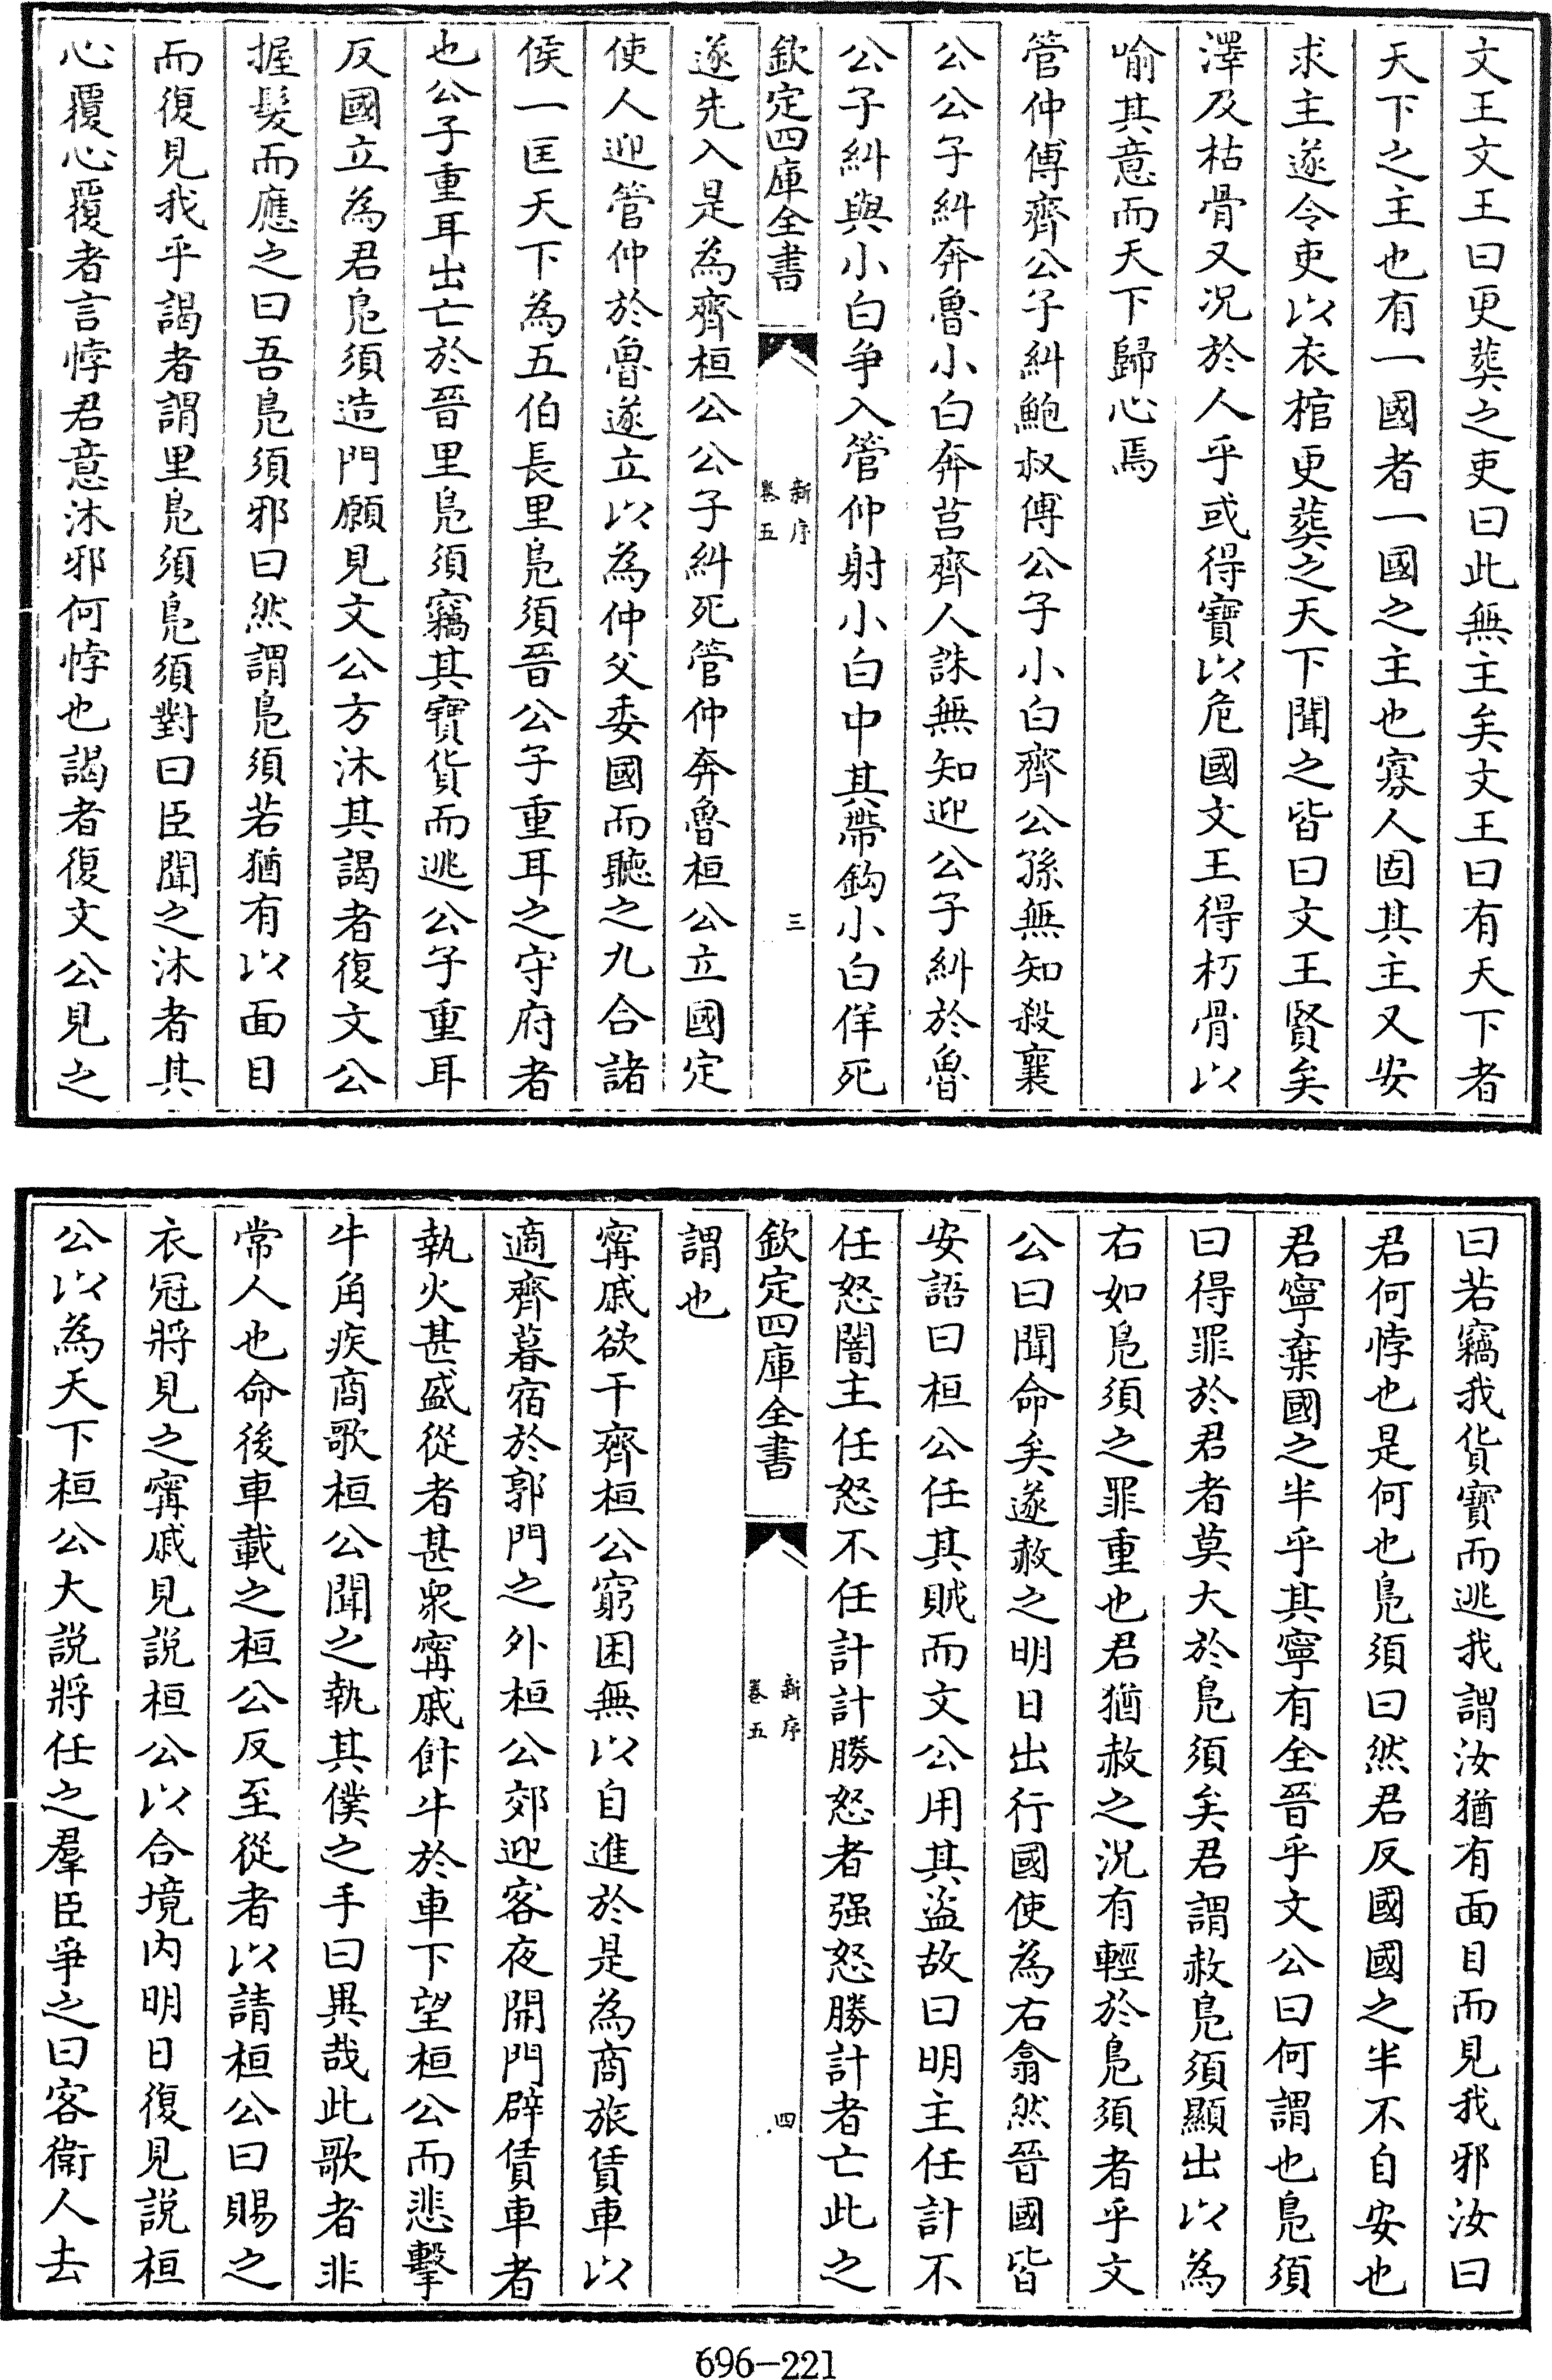 文王文王曰更葬之吏曰此無主矣文王曰有天下者
天下之主也有一國者一國之主也寡人固其主又安
求主遂令吏以衣棺更葬之天下聞之皆曰文王賢矣
澤及枯骨又況於人乎或得寶以危國文王得朽骨以
喻其意而天下歸心焉
管仲傅齊公子糾鮑叔傅公子小白齊公孫無知殺襄
公公子糾奔魯小白奔莒齊人誅無知迎公子糾於魯
公子糾與小白爭入管仲射小白中其帶鈎小白佯死
欽定四庫全書
新序
卷五
三
遂先入是為齊桓公公子糾死管仲奔魯桓公立國定
使人迎管仲於魯遂立以為仲父委國而聽之九合諸
侯一匡天下為五伯長里鳧須晉公子重耳之守府者
也公子重耳出亡於晉里鳧須竊其寶貨而逃公子重耳
反國立為君鳧須造門願見文公方沐其謁者復文公
握髮而應之曰吾鳧須邪曰然謂鳧須若猶有以面目
而復見我乎謁者謂里鳧須鳧須對曰臣聞之沐者其
心覆心覆者言悖君意沐邪何悖也謁者復文公見之
曰若竊我貨寶而逃我謂汝猶有面目而見我邪汝曰
君何悖也是何也鳧須曰然君反國國之半不自安也
君寧棄國之半乎其寧有全晉乎文公曰何謂也鳧須
曰得罪於君者莫大於鳧須矣君謂赦鳧須顯出以為
右如鳧須之罪重也君猶赦之況有輕於鳧須者乎文
公曰聞命矣遂赦之明日出行國使為右翕然晉國皆
安語曰桓公任其賊而文公用其盜故曰明主任計不
任怒闇主任怒不任計計勝怒者强怒勝計者亡此之
欽定四庫全書
新序
卷五
四
謂也
甯戚欲干齊桓公窮困無以自進於是為商旅賃車以
適齊暮宿於郭門之外桓公郊迎客夜開門辟賃車者
執火甚盛從者甚衆甯戚飰牛於車下望桓公而悲擊
牛角疾商歌桓公聞之執其僕之手曰異哉此歌者非
常人也命後車載之桓公反至從者以請桓公曰賜之
衣冠將見之甯戚見說桓公以合境内明日復見說桓
公以為天下桓公大說將任之羣臣爭之曰客衛人去
696-221